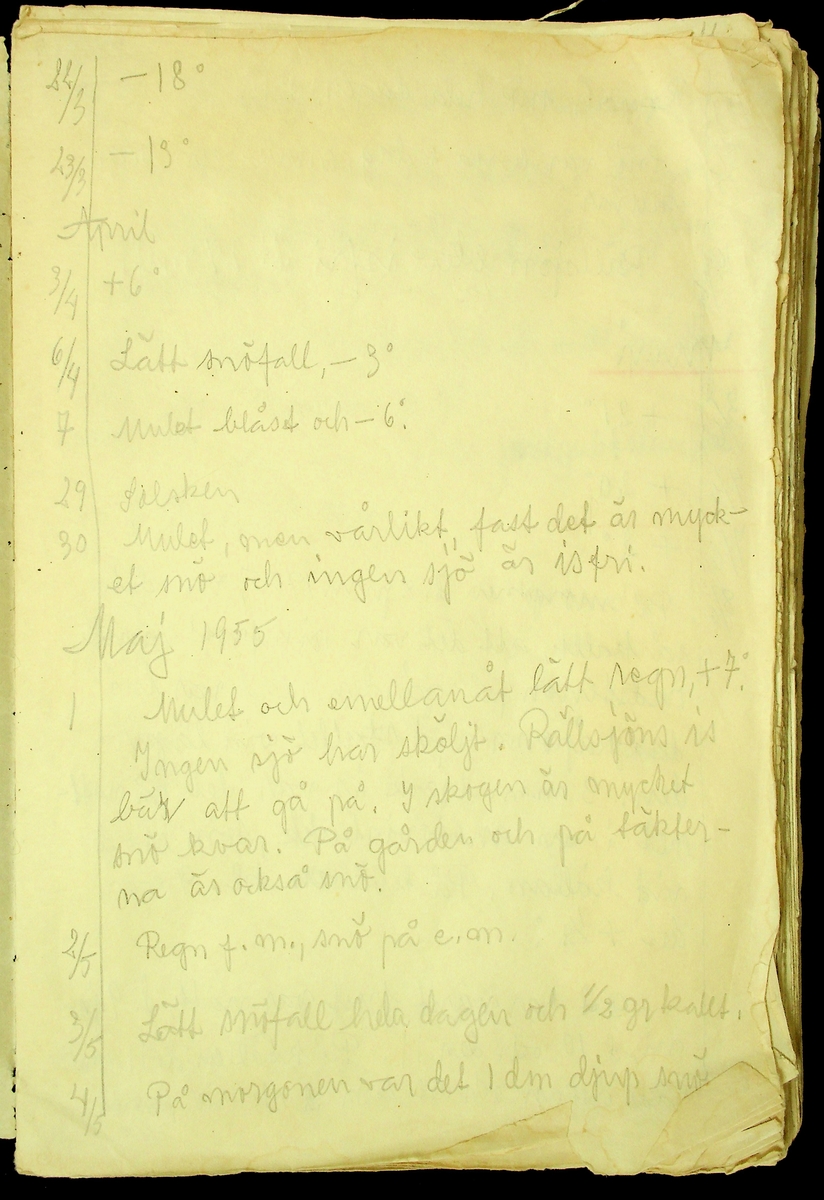 22/3 -18°
23/3 -19°
April
3/4 +6°
6/4 Lätt snöfall, -3°
7 Mulet blåst och -6°.
29 Solsken
30 Mulet, men vårlikt, fast det är myck-
et snö och ingen sjö är isfri.
Maj 1955
1 Mulet och emellanåt lätt regn, +7°.
Ingen sjö har sköljt. Rällsjöns is
bär att gå på. I skogen är mycket
snö kvar. På gården och på täkter-
na är också snö.
2/5 Regn f.m., snö på e.m.
3/5 Lätt snöfall hela dagen och 1/2 gr kallt.
4/5 På morgonen var det 1 dm djup snö